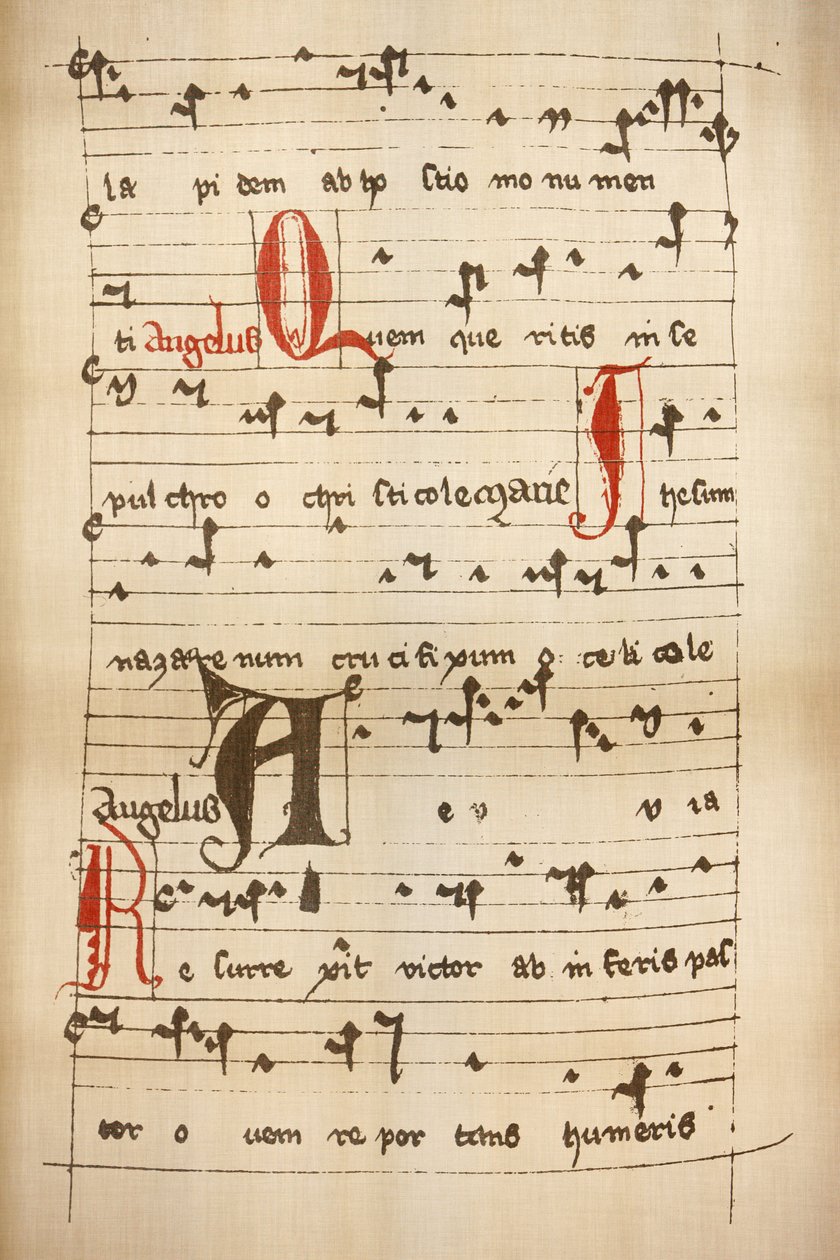 la pi dem ab ho stio mo nu men
ti Angelus Quem que ritis in se
pul chro o chri sti co le Marie Ihesum
nazare num cru ci fi xum o ce li co le
Angelus A e v v ia
Re surre xit victor ab in feris pas
tor o vem re por tans humeris